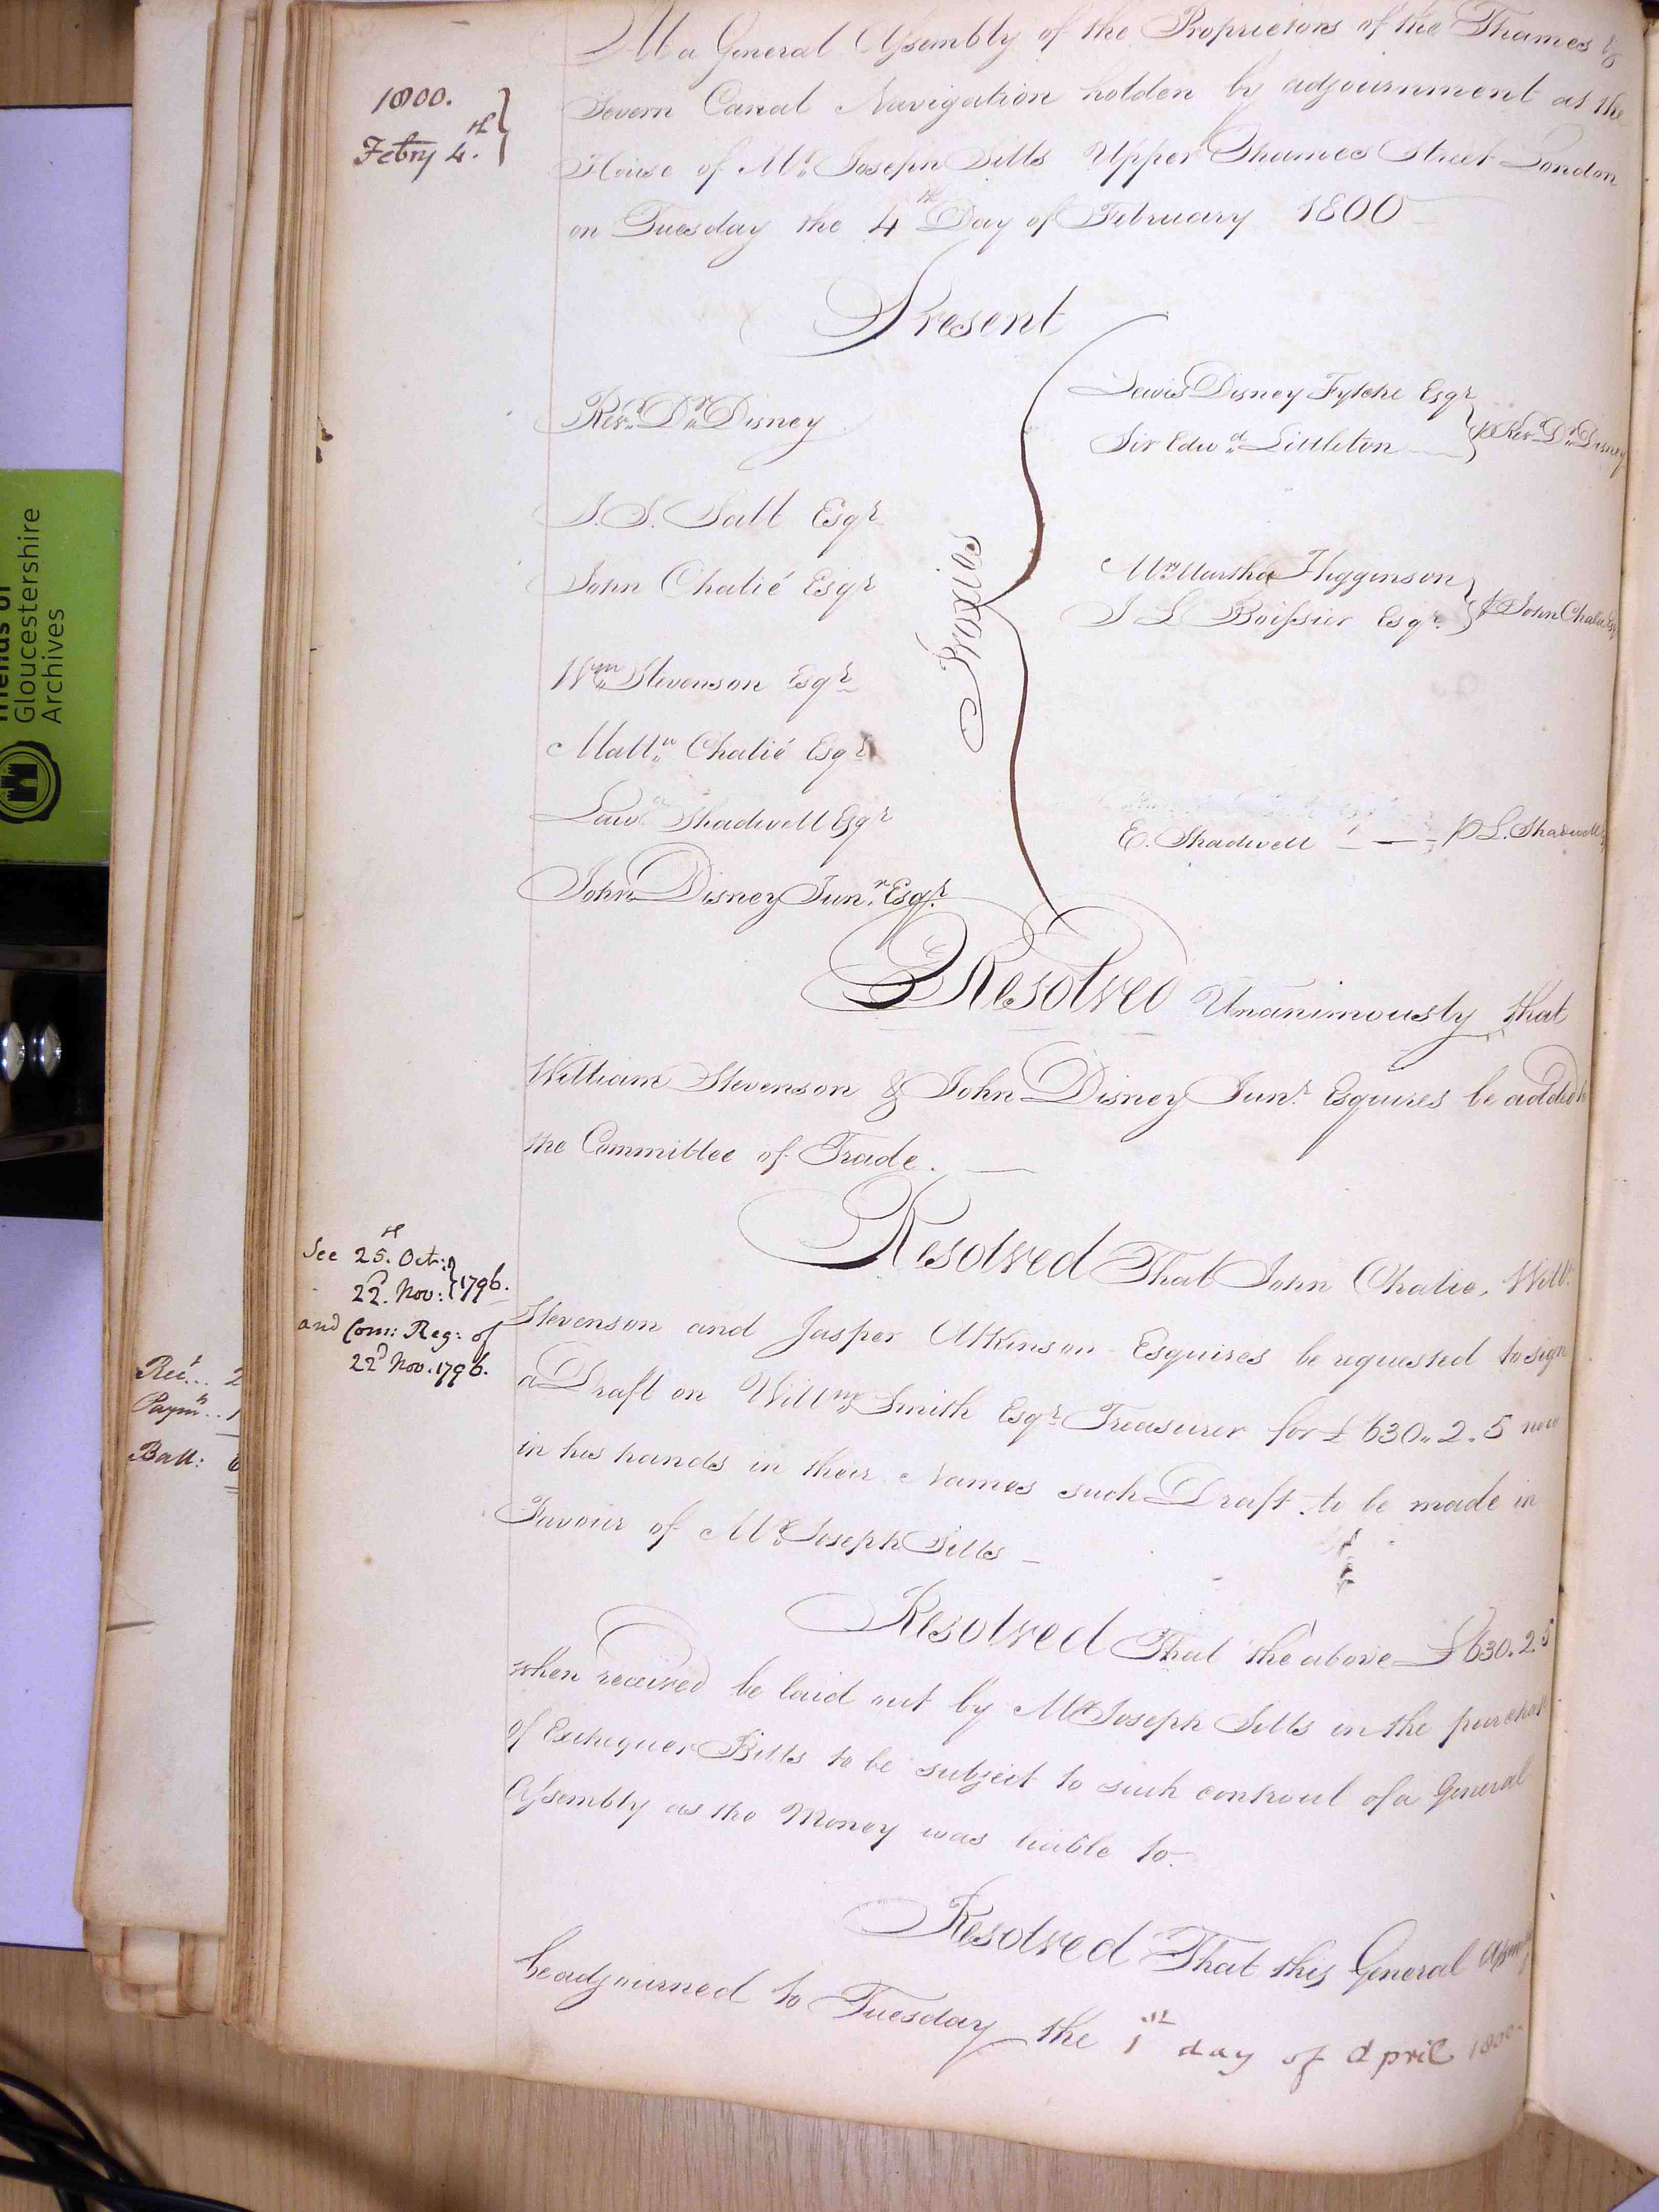 1800.
Febry 4.th
At a General Assembly of the Proprietors of the Thames &
Severn Canal Navigation holden by adjournment at the
House of Mr. Joseph Sills Upper Thames Street London
on Tuesday the 4th Day of February 1800
Present
Revd. Dr. Disney
J. S. Salt Esqr
John Chalié Esqr
Wm. Stevenson Esqr
Mattw. Chalié Esqr
Lawe Shadwell Esqr
John Disney Junr. Esqr.
Proxies
Lewis Disney Fytche Esqr
Sir Edwd. Littleton
p Revd. Dr. Disney
Mrs Martha Higginson
J L Boissier Esqr.
p John Chalie Esqr
E. Shadwell p L. Shadwell
Resolved Unanimously that
William Stevenson & John Disney Junr. Esquires be added to
the Committee of Trade.
See 25.th Oct:
22.d Nov: 1796.
and Com: Reg: of
22d Nov. 1796.
Resolved That John Chalie, Willm.
Stevenson and Jasper Atkinson Esquires be requested to sign
a Draft on Willm. Smith Esqr. Treasurer for £630,, 2. 5 now
in his hands in their Names such Draft to be made in
Favour of Mr. Joseph Sills
Resolved That the above £630. 2. 5
when received be laid out by Mr Joseph Sills in the purchase
of Exchequer Bills to be subject to such controul of a General
Assembly as the Money was liable to.
Resolved That this General Assembly
be adjourned to Tuesday the 1st day of April 1800
Rect... 2
Paymts.. 1
Ball: 6
Friends of
Gloucestershire
Archives